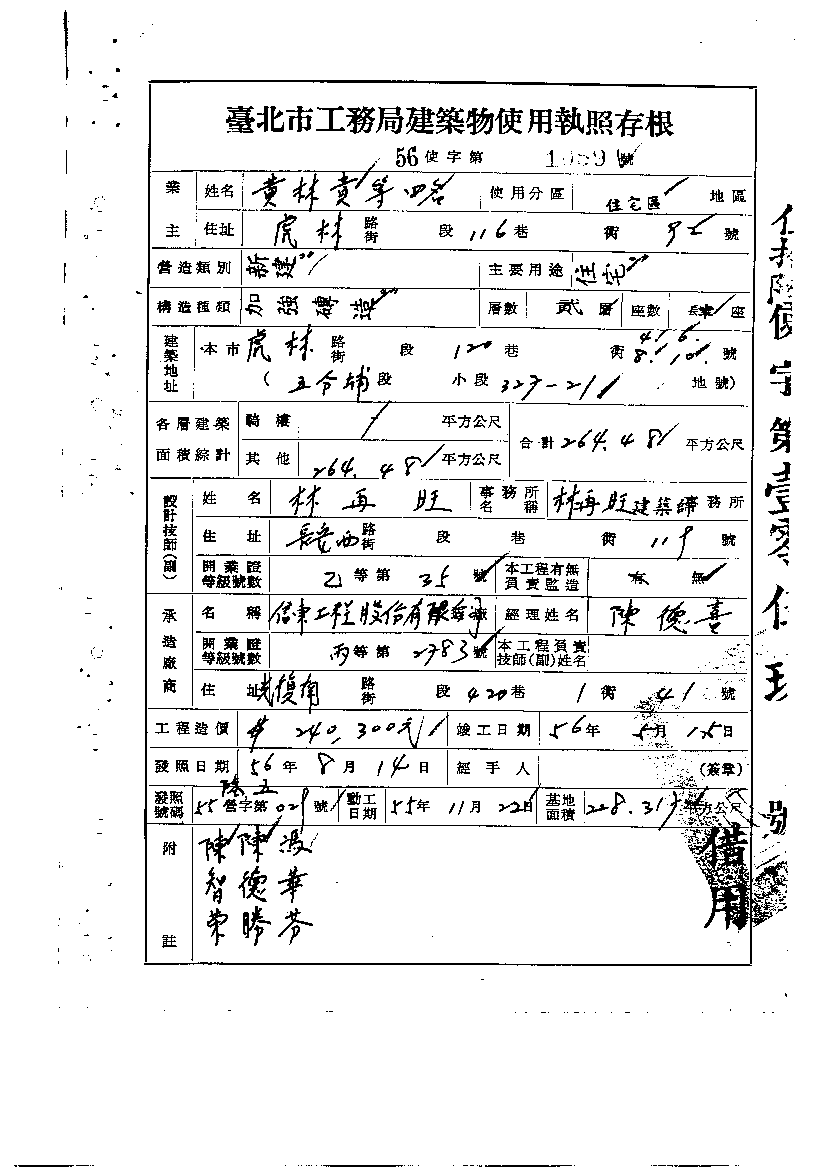 臺北市工務局建築物使用執照存根
56使字第 1059 號
業主 姓名 黃林貴等四名 使用分區 住宅區 地區
住址 虎林 路街 段 116巷 街 號
營造類別 新建 主要用途 住宅
構造種類 加強磚造 層數 貳層 座數 座
建築地址 本市 虎林 路街 段 120巷 街 4.6.8.10. 號
(五分埔段 小段 327-21 地號)
各層建築面積綜計 騎樓 / 平方公尺 合計 264.48 平方公尺
其他 264.48 平方公尺
設計技師(副) 姓名 林再旺 事務所名稱 林再旺建築師事務所
住址 長安西 路街 段 巷 街 119 號
開業證等級號數 乙等第 35 號 本工程有無負責監造 有 無
承造廠商 名稱 信東工程股份有限公司 經理姓名 陳德喜
開業證等級號數 丙等第 2783 號 本工程負責技師(副)姓名
住址 路街 段 420巷 1街 41 號
工程造價 $ 240,300元 竣工日期 56年 5月 15日
發照日期 56年 8月 14日 經手人 (簽章)
發照號碼 55營字第 029 號 動工日期 55年 11月 22日 基地面積 228.31 平方公尺
附註 陳 陳 馮
智 德 華
榮 勝 芬
伍拾陸使字第壹零伍玖號
借用